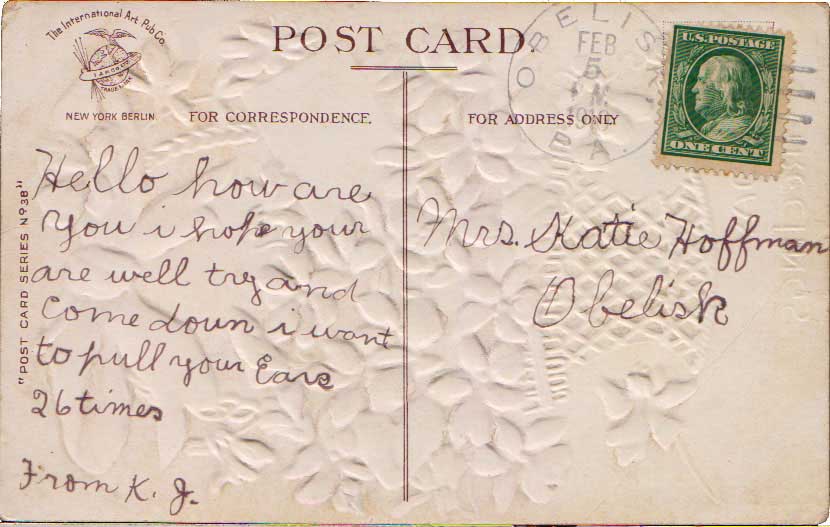 The International Art Pub Co.
TRADE MARK
NEW YORK BERLIN.
POST CARD.
FOR CORRESPONDENCE.
FOR ADDRESS ONLY
OBELISK
FEB
5
PA
U.S. POSTAGE
ONE CENT
"POST CARD SERIES Nº 38"
Hello how are
You i hope your
are well try and
Come down i want
to pull your Ears
26 times
From K. J.
Mrs. Katie Hoffman
Obelisk